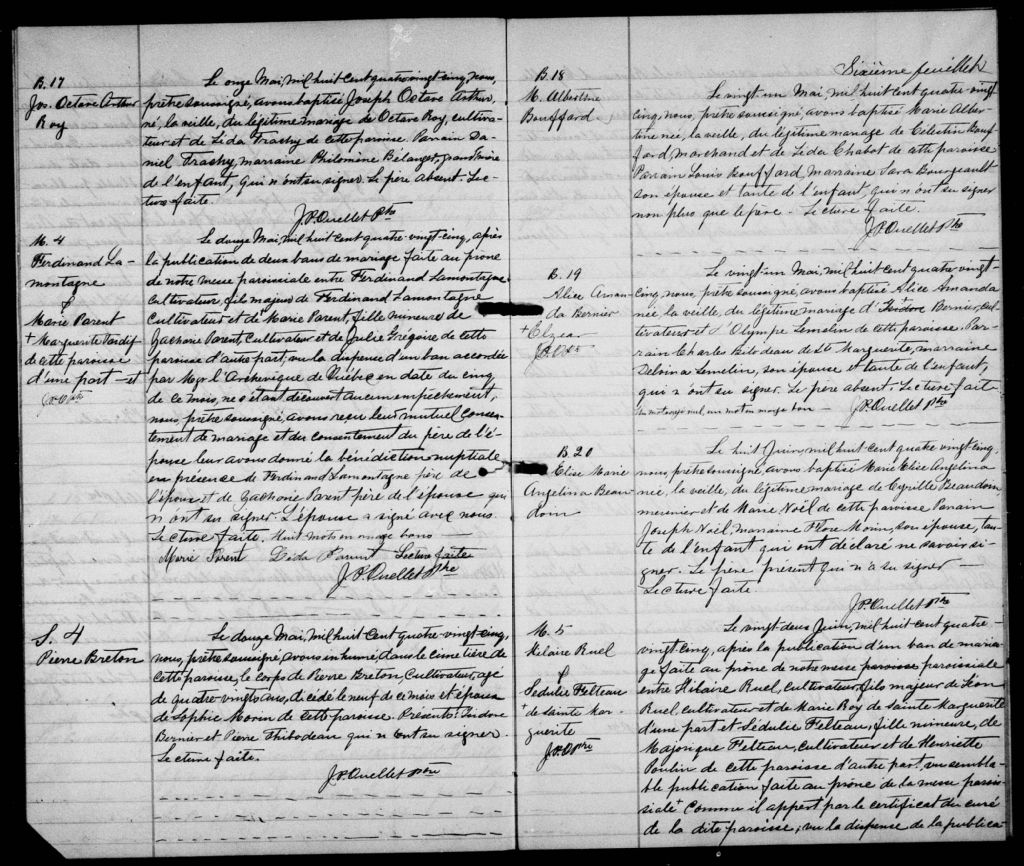 B. 17
Jos. Octave Arthur
Roy
Le onze Mai, mil huit cent quatre-vingt-cinq, nous,
prêtre soussigné, avons baptisé Joseph Octave Arthur,
né, la veille, du légitime mariage de Octave Roy, cultiva-
teur et de Léda Trachy de cette paroisse. Parrain Da-
niel Trachy, marraine Philomène Bélanger, grand'mère
de l'enfant, qui n'ont su signer. Le père absent. Lec-
ture faite.
J.P. Ouellet Ptre
M. 4
Ferdinand La-
montagne
&
Marie Parent
+ Marguerite Tardif
de cette paroisse
d'une part - et
Le douze Mai, mil huit cent quatre-vingt-cinq, après
la publication de deux bans de mariage faite au prône
de notre messe paroissiale entre Ferdinand Lamontagne
cultivateur, fils majeur de Ferdinand Lamontagne
cultivateur et de + Marie Parent, fille mineure de
Zacharie Parent, cultivateur et de Julie Grégoire de cette
paroisse d'autre part, vu la dispense d'un ban accordée
par Mgr l'Archevêque de Québec en date du cinq
de ce mois, ne s'étant découvert aucun empêchement,
nous, prêtre soussigné, avons reçu leur mutuel consen-
tement de mariage et du consentement du père de l'é-
pouse leur avons donné la bénédiction nuptiale
en présence de Ferdinand Lamontagne père de
l'époux et de Zacharie Parent père de l'épouse qui
n'ont su signer. L'épouse a signé avec nous.
Lecture faite. Huit mots en marge bons
Marie Parent Léda Parent Lecture faite
J.P. Ouellet Ptre
S. 4
Pierre Breton
Le douze Mai, mil huit cent quatre-vingt-cinq,
nous, prêtre soussigné, avons inhumé, dans le cimetière de
cette paroisse, le corps de Pierre Breton, Cultivateur, agé
de quatre-vingts ans, décédé le neuf de ce mois et époux
de Sophie Morin de cette paroisse. Présents: Isidore
Bernier et Pierre Thibodeau qui n'ont su signer.
Lecture faite.
J.P. Ouellet Ptre
Sixième feuillet
B. 18
M. Albertine
Bouffard
Le vingt-un Mai, mil huit cent quatre-vingt
cinq, nous, prêtre soussigné, avons baptisé Marie Alber-
tine née, la veille, du légitime mariage de Célestin Bouf-
fard, Marchand et de Léda Chabot de cette paroisse
Parrain Louis Bouffard, Marraine Sara Bourgeault
son épouse et tante de l'enfant, qui n'ont su signer
non plus que le père. Lecture faite.
J.P. Ouellet Ptre
B. 19
Alice Aman-
da Bernier
+ Elzéar
Le vingt-un Mai, mil huit cent quatre-vingt-
cinq, nous, prêtre soussigné, avons baptisé Alice Amanda
née, la veille, du légitime mariage d' + Isidore Bernier, cul-
tivateur et d'Olympe Lemelin de cette paroisse. Par-
rain Charles Bilodeau de Ste Marguerite, marraine
Delvina Lemelin, son épouse et tante de l'enfant,
qui n'ont su signer. Le père absent. Lecture faite
Un mot rayé nul un mot en marge bon - J.P. Ouellet Ptre
B. 20
Elise Marie
Angelina Beau-
dom
Le huit Juin, mil huit cent quatre-vingt-cinq,
nous, prêtre soussigné, avons baptisé Marie Elise Angelina
née, la veille, du légitime mariage de Cyrille Beaudom
meunier et de Marie Noël de cette paroisse Parrain
Joseph Noël, Marraine Flore Morin, son épouse, tan-
te de l'enfant qui ont déclaré ne savoir si-
gner. Le père présent qui n'a su signer -
Lecture faite.
J.P. Ouellet Ptre
M. 5
Hilaire Ruel
&
Sédulie Felteau
+ de Sainte Mar-
guerite
J.P.O Ptre
Le vingt-deux Juin, mil huit cent quatre-
vingt-cinq, après la publication d'un ban de maria-
ge faite au prône de notre messe paroisse paroissiale
entre Hilaire Ruel, cultivateur, fils majeur de Léon
Ruel, cultivateur et de Marie Roy de Sainte Marguerite
d'une part et Sédulie Felteau, fille mineure, de
Majorique Felteau, cultivateur et de Henriette
Poulin de cette paroisse d'autre part, vu sembla-
ble publication faite au prône de la messe parois-
siale + comme il appert par le certificat du curé
de la dite paroisse; vu la dispense de la publica-